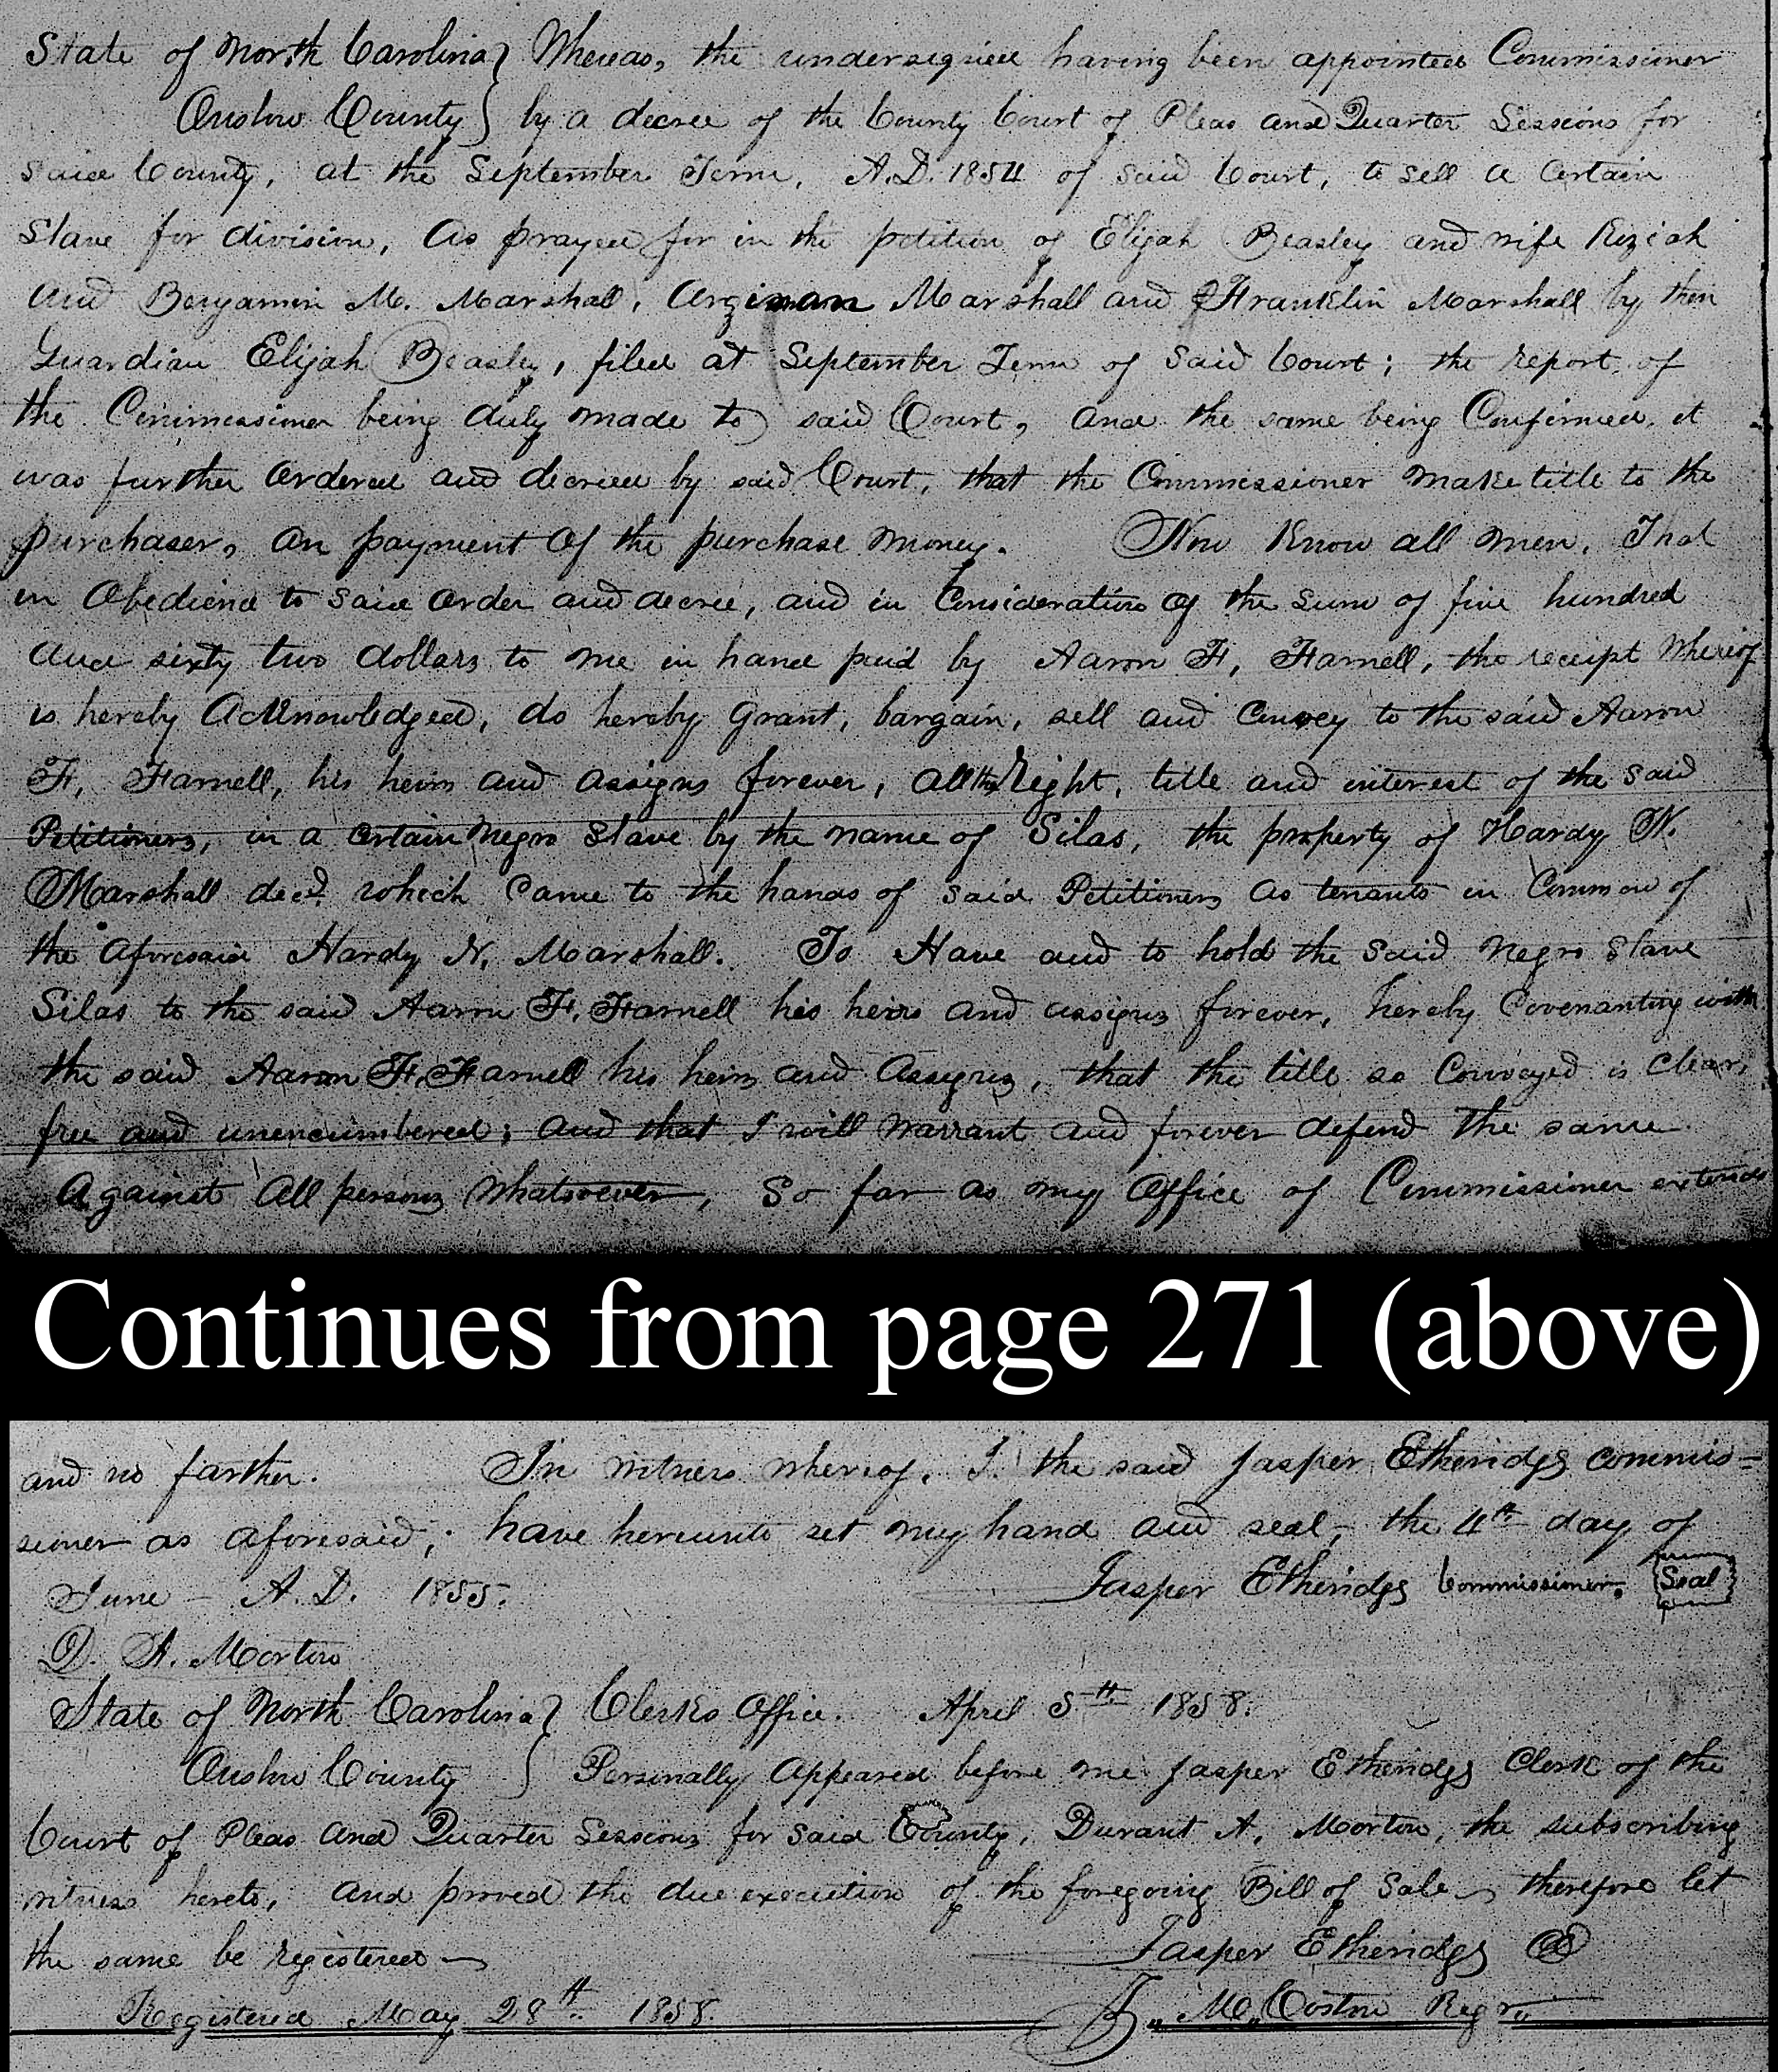 State of North Carolina } Whereas, the undersigned having been appointed Commissioner
Onslow County } by a decree of the County Court of Pleas and Quarter Sessions for
said County, at the September Term, A.D. 1854 of said Court, to sell a Certain
Slave for division, As prayed for in the petition of Elijah Beasley and wife Keziah
And Benjamin M. Marshall, Marshall and Franklin Marshall by their
Guardian Elijah Beasley, filed at September Term of said Court; the report of
the Commissioner being duly made to said Court, and the same being Confirmed, it
was further Ordered and decreed by said Court, that the Commissioner make title to the
purchaser, on payment Of the purchase money. Now Know all men, That
in Obedience to said Order and decree, and in Consideration Of the sum of five hundred
And sixty two dollars to me in hand paid by Aaron F. Farnell, the receipt whereof
is hereby Acknowledged, do hereby Grant, bargain, sell and Convey to the said Aaron
F. Farnell, his heirs and assigns forever, All the Right, title and interest of the said
Petitioners, in a Certain Negro Slave by the name of Silas, the property of Hardy N.
Marshall decd. which Came to the hands of said Petitioners as tenants in Common of
the Aforesaid Hardy N. Marshall. To Have and to hold the said Negro Slave
Silas to the said Aaron F. Farnell his heirs and assigns forever, hereby Covenanting with
the said Aaron F. Farnell his heirs and Assigns, that the title so Conveyed is Clear,
free and unencumbered; and that I will Warrant and forever defend the same
Against All persons Whatsoever, So far as my Office of Commissioner extends
Continues from page 271 (above)
and no farther. In witness whereof, I the said Jasper Etheridge commis=
sioner as aforesaid; have hereunto set my hand and seal, the 4th day of
June - A.D. 1855. Jasper Etheridge Commissioner. Seal
D. A. Morton
State of North Carolina } Clerks Office. April 5th 1858.
Onslow County } Personally Appeared before me Jasper Etheridge Clerk of the
Court of Pleas And Quarter Sessions for said County, Durant A. Morton, the subscribing
witness hereto, And proved the due execution of the foregoing Bill of Sale, therefore let
the same be registered
Jasper Etheridge
Registered May 28th 1858. M. Costin Regr.